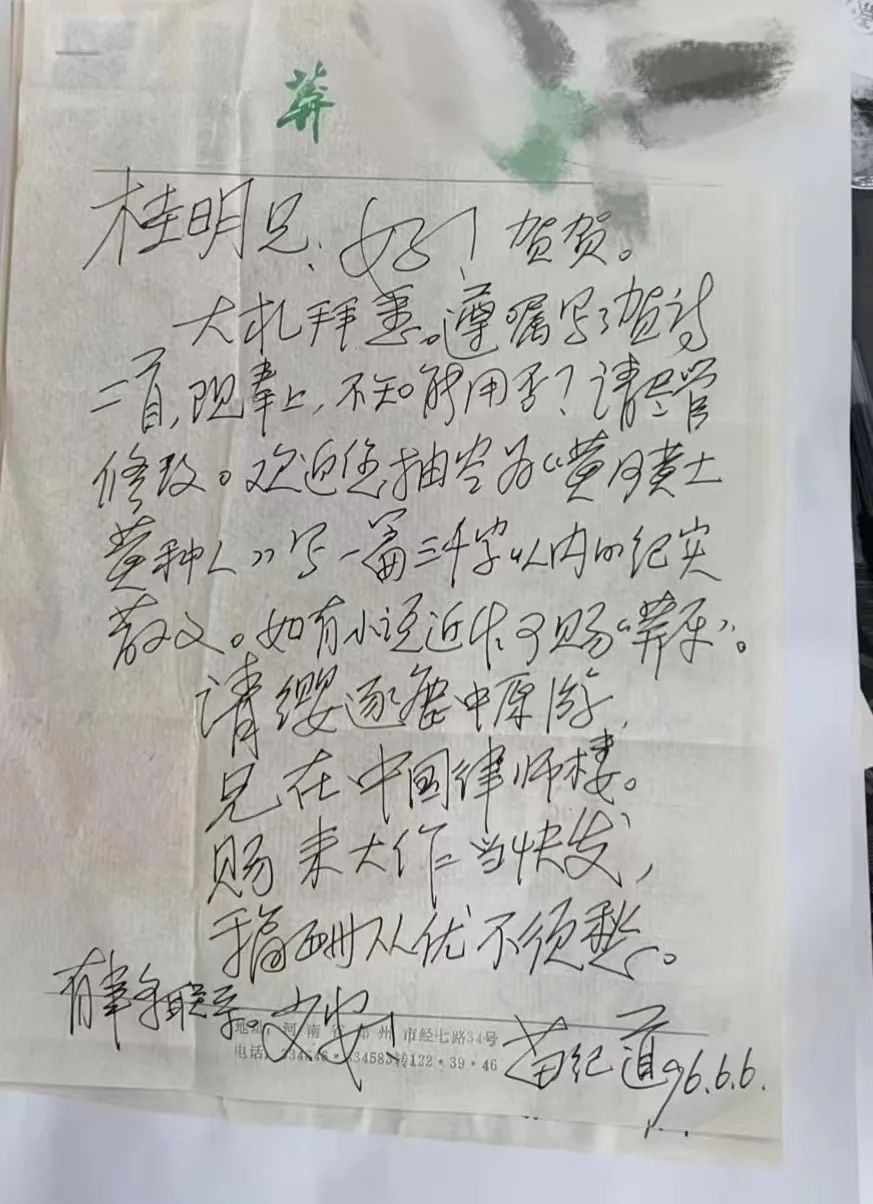 莽
桂明兄:好!贺贺。
大札拜悉。遵嘱写了贺诗
二首,现奉上,不知能用否?请尽管
修改。欢迎您抽空为“黄河黄土
黄种人”写一篇三千字以内的纪实
散文。如有小说近作可赐“莽原”。
请缨逐鹿中原游,
兄在中国律师楼。
赐来大作当快发,
稿酬从优不须愁。
有事多联系。文安!
苗纪道96.6.6.
地址 河南省郑州市经七路34号
电话 334583转122·39·46